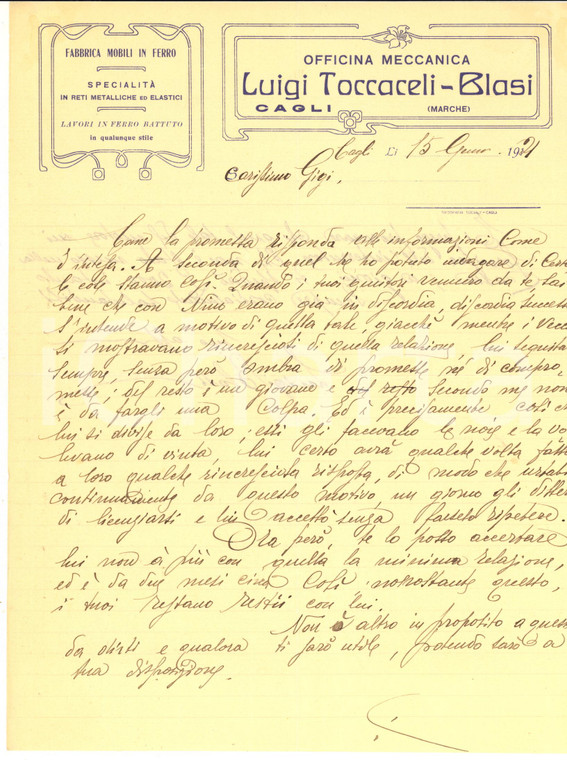 FABBRICA MOBILI IN FERRO
SPECIALITÀ
IN RETI METALLICHE ED ELASTICI
LAVORI IN FERRO BATTUTO
in qualunque stile
OFFICINA MECCANICA
Luigi Toccaceli-Blasi
CAGLI (MARCHE)
Cagli li 15 Genn. 192
Carissimo Gigi,
Come la promessa risponda alle informazioni come
d'intesa. A seconda di quel ho potuto indagare di certo
le cose stanno così. Quando i tuoi genitori vennero da te sai
bene che con Nino erano già in discordia, discordia successa
s'intende a motivo di quella tale, giacchè mentre i vecchi
si mostravano rincresciosi di quella relazione, lui
sempre, senza però ombra di promesse nè di compro
messi; del resto è un giovane e secondo me non
è da fargli una colpa. Ed è precisamente così che
lui si divise da loro; essi gli facevano la noia e la vo
levano di vinta, lui certo avrà qualche volta fatto
a loro qualche rincresciosa risposta, di modo che
continuamente da questo motivo, un giorno gli dissero
di licenziarsi e lui accettò senza farselo ripetere.
Ora però te lo posso accertare
lui non à più con quella la minima relazione,
ed è da due mesi circa così nonostante questo,
i tuoi restano con lui.
Non ò altro in proposito a questo
da dirti e qualora ti sarò utile, sarò a
tua disposizione.